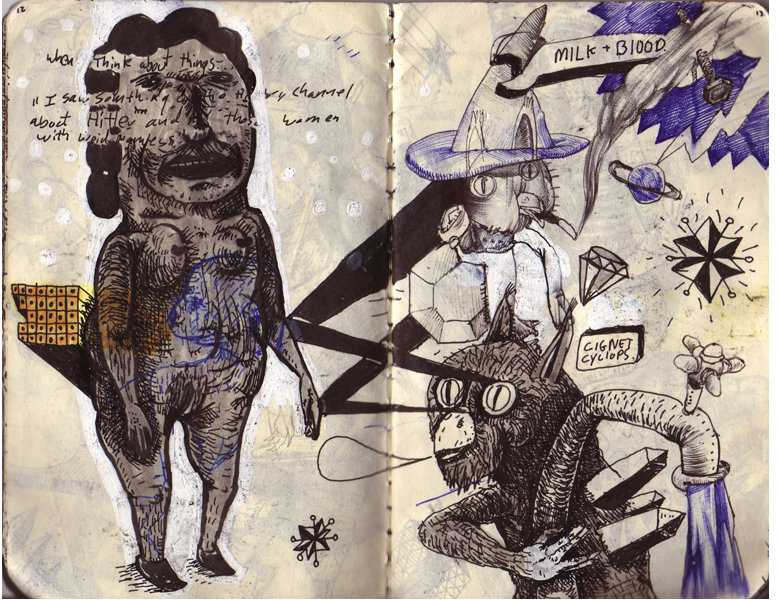 12
when I think about things-
"I saw something on the History channel
about Hitler and all those women
with weird
MILK + BLOOD
13
CIGNET
CYCLOPS.